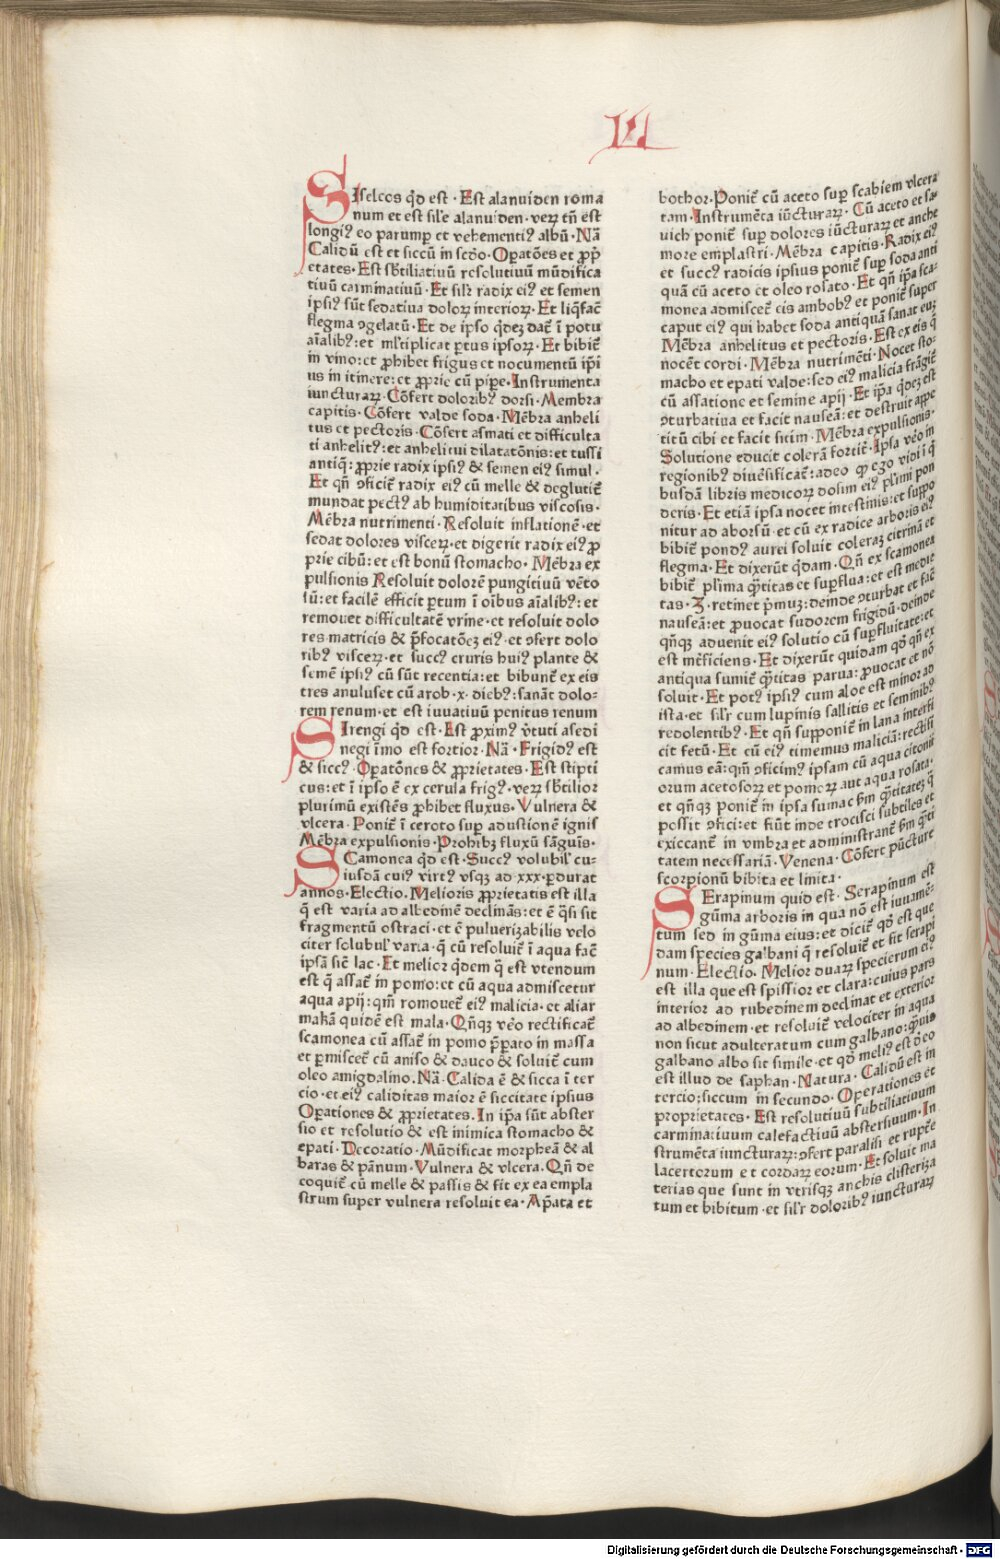 VI
Siselcos q̄d est · Est alanuiden roma
num et est sil'e alanuiden · veꝝ tñ est
longiꝰ eo parumꝑ et vehementiꝰ albū · Nā
Calidū est et siccū in scd̄o · Oꝑatōes et ꝓp̄
etates · Est sb̄tiliatiuū resolutiuū mūdifica
tiuū carminatiuū · Et sil'r radix eiꝰ et semen
ipsiꝰ sūt sedatiua doloꝝ interioꝝ · Et liq̄fac̄
flegma ꝯgelatū · Et de ipso q̄dez dat̄ ī potu
aīalibꝰ: et ml'tiplicat ꝑtus ipsoꝝ · Et bibit̄
in vino: et ꝓhibet frigus et nocumentū ip̄i
us in itinere: et ꝓprie cū piꝑe · Instrumenta
iuncturaꝝ · Cōfert doloribꝰ dorsi · Membra
capitis · Cōfert valde soda · Mēbra anheli
tus et pectoris · Cōfert asmati et difficulta
ti anhelitꝰ: et anhelitui dilatatōnis: et tussi
antiq̄: ꝓprie radix ipsiꝰ & semen eiꝰ simul ·
Et qn̄ ꝯficit̄ radix eiꝰ cū melle & deglutit̄
mundat pectꝰ ab humiditatibus viscosis ·
Mēbra nutrimenti · Resoluit inflationē · et
sedat dolores visceꝝ · et digerit radix eiꝰ ꝓ
prie cibū: et est bonū stomacho · Mēbra ex
pulsionis Resoluit dolorē pungitiuū vēto
sū: et facilē efficit ꝑtum ī oībus aīalibꝰ: et
remouet difficultatē vrīne · et resoluit dolo
res matricis & p̄focatōeꝫ eiꝰ · et ꝯfert dolo
ribꝰ visceꝝ · et succꝰ cruris huiꝰ plante &
semē ipsiꝰ cū sūt recentia: et bibunt̄ ex eis
tres anuluset cū arob · x · diebꝰ: sanāt dolo-
rem renum · et est iuuatiuū penitus renum
Sirengi q̄d est · Est ꝓximꝰ v̄tuti asedi
negi īmo est fortior · Nā · Frigidꝰ est
& siccꝰ · Oꝑatōnes & ꝓprietates · Est stipti
cus: et ī ipso ē ex cerula frigꝰ · veꝝ sb̄tilior
plurimū existēs ꝓhibet fluxus · Vulnera &
vlcera · Ponit̄ ī ceroto suꝑ adustionē ignis
Mēbra expulsionis · Prohibꝫ fluxū sāguis ·
SCamonea q̄d est · Succꝰ volubil' cu-
iusdā cuiꝰ virtꝰ vsqꝫ ad xxx · ꝑdurat
annos · Electio · Melioris ꝓprietatis est illa
q̄ est varia ad albedinē declinās: et ē q̄si sit
fragmentū ostraci · et ē pulverizabilis velo
citer solubul' varia · q̄ cū resoluit̄ ī aqua fac̄
ipsā sic̄ lac · Et melior q̄dem q̄ est vtendum
est q̄ assat̄ in pomo: et cū aqua admiscetur
aqua apij: qm̄ remouet̄ eiꝰ malicia · et aliar
makā quidē est mala · Qn̄qꝫ vēo rectificat̄
scamonea cū assat̄ in pomo p̄parato in massa
et ꝑmiscet̄ cū aniso & dauco & soluit̄ cum
oleo amigdalino · Nā · Calida ē & sicca ī ter
cio · et eiꝰ caliditas maior ē siccitate ipsius
Oꝑationes & ꝓprietates · In ip̄a sūt abster
sio et resolutio & est inimica stomacho &
epati · Decoratio · Mūdificat morpheā & al
baras & pānum · Vulnera & vlcera · Qn̄ de
coquit̄ cū melle & passis & fit ex ea empla
strum super vulnera resoluit ea · Ap̄ata et
bothor · Ponit̄ cū aceto suꝑ scabiem vlcera
tam · Instrumēta iūcturaꝝ · Cū aceto et sa-
uich ponit̄ suꝑ dolores iūcturaꝝ et anche
more emplastri · Mēbra capitis · Radix eiꝰ
et succꝰ radicis ipsius ponit̄ suꝑ soda anti
quā cū aceto et oleo rosato · Et qn̄ ip̄a sca-
monea admiscet̄ eis ambobꝰ et ponit̄ super
caput eiꝰ qui habet soda antiquā sanat euꝫ
Mēbra anhelitus et pectoris · Est ex eis q̄
nocēt cordi · Mēbra nutrimēti · Nocet sto-
macho et epati valde: sed eiꝰ malicia frāgit̄
cū assatione et semine apij · Et ip̄a q̄deꝫ est
ꝯturbatiua et facit nauseā: et destruit appe
titū cibi et facit sitim · Mēbra expulsionis ·
Solutione educit colerā fortit̄ · Ipsa vēo in
regionibꝰ diuēsificat̄: adeo ꝙ ego vidi ī q̄
busdā libris medicoꝝ dosim eiꝰ pl'imi pon
deris · Et etiā ipsa nocet intestinis: et suppo
nitur ad aborsū · et cū ex radice arboris eiꝰ
bibit̄ pondꝰ aurei soluit coleraꝫ citrinā et
flegma · Et dixerūt q̄dam · Qn̄ ex scamonea
bibit̄ pl'ima q̄titas et suꝑflua: et est medie
tas · ʒ · retinet p̄muꝫ: deinde ꝯturbat et fac̄
nauseā: et ꝓuocat sudorem frigidū · deinde
qn̄qꝫ aduenit eiꝰ solutio cū suꝑfluitate: et
est mēficiens · Et dixerūt quidam q̄d qn̄ ex
antiqua sumit̄ q̄titas parua: ꝓuocat et nō
soluit · Et potꝰ ipsiꝰ cum aloe est minor ad
ista · et sil'r cum lupinis sallitis et seminibꝰ
redolentibꝰ · Et qn̄ supponit̄ in lana interfi
cit fetū · Et cū eiꝰ timemus maliciā: rectifi
camus eā: qm̄ ꝯficimꝰ ipsam cū aqua citonii
orum acetosoꝝ et pomoꝝ aut aqua rosata ·
et qn̄qꝫ ponit̄ in ipsa sumac ẜm q̄titateꝫ q̄
possit ꝯfici: et fiūt inde trocisci subtiles et
exiccant̄ in vmbra et administrant̄ ẜm q̄ti
tatem necessariā · Venena · Cōfert pūcture
scorpionū bibita et linita ·
SErapinum quid est · Serapinum est
gūma arboris in qua nō est iuuamē-
tum sed in gūma eius: et dicit̄ q̄d est que
dam species galbani q̄ resoluit̄ et fit serapi
num · Electio · Melior duaꝝ specierum eiꝰ
est illa que est spissior et clara: cuius pars
interior ad rubedinem declinat et exterior
ad albedinem · et resoluit̄ velociter in aqua
non sicut adulteratum cum galbano: q̄uis
galbano albo sit simile · et q̄d meliꝰ est d̄ eo
est illud de saphan · Natura · Calidū est in
tercio: siccum in secundo · Operationes et
proprietates · Est resolutiuū subtiliatiuum
carminatiuum calefactiuū abstersiuum · In
strumēta iuncturaꝝ: ꝯfert paralisi et rupt̄e
lacertorum et cordaꝝ eorum · Et soluit ma
terias que sunt in vtrisqꝫ anchis clisteriza
tum et bibitum · et sil'r doloribꝰ iuncturaꝝ
Digitalisierung gefördert durch die Deutsche Forschungsgemeinschaft · DFG